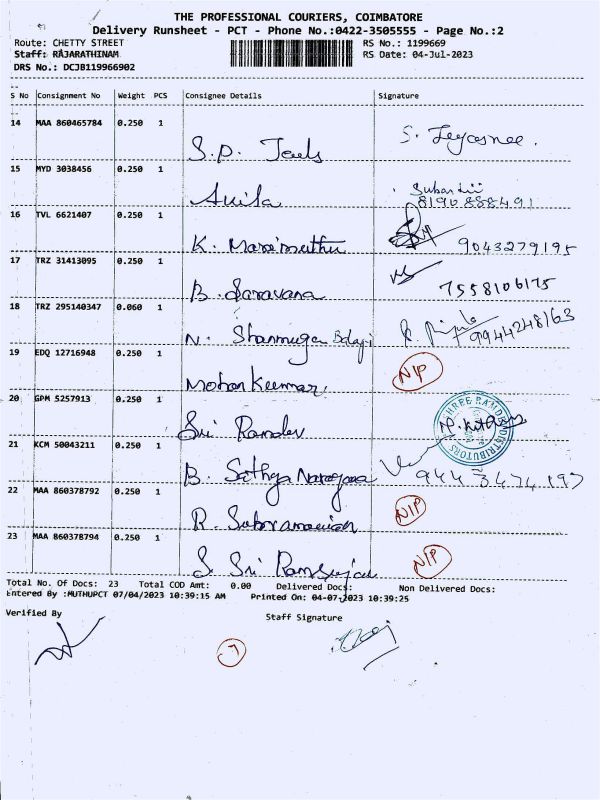 THE PROFESSIONAL COURIERS, COIMBATORE
Delivery Runsheet - PCT - Phone No.:0422-3505555 - Page No.:2
Route: CHETTY STREET RS No.: 1199669
Staff: RAJARATHINAM RS Date: 04-Jul-2023
DRS No.: DCJB119966902
S No Consignment No Weight PCS Consignee Details Signature
14 MAA 860465784 0.250 1
S.P. S. Jeyasnee.
15 MYD 3038456 0.250 1
Anila 8190888491
16 TVL 6621407 0.250 1
K. Marimuthu 9043279195
17 TRZ 31413095 0.250 1
B. Saravana 7558106175
18 TRZ 295140347 0.060 1
N. Shanmuga Balaji 9944248163
19 EDQ 12716948 0.250 1
Mohan Kummar. N/P
20 GPM 5257913 0.250 1
Sri Ramdev SHREE RAMDEV DISTRIBUTORS
21 KCM 50043211 0.250 1
B. Sathya Narayana 9443474197
22 MAA 860378792 0.250 1
R. Subramanian N/P
23 MAA 860378794 0.250 1
S. Sri N/P
Total No. Of Docs: 23 Total COD Amt: 0.00 Delivered Docs: Non Delivered Docs:
Entered By :MUTHUPCT 07/04/2023 10:39:15 AM Printed On: 04-07-2023 10:39:25
Verified By Staff Signature
7